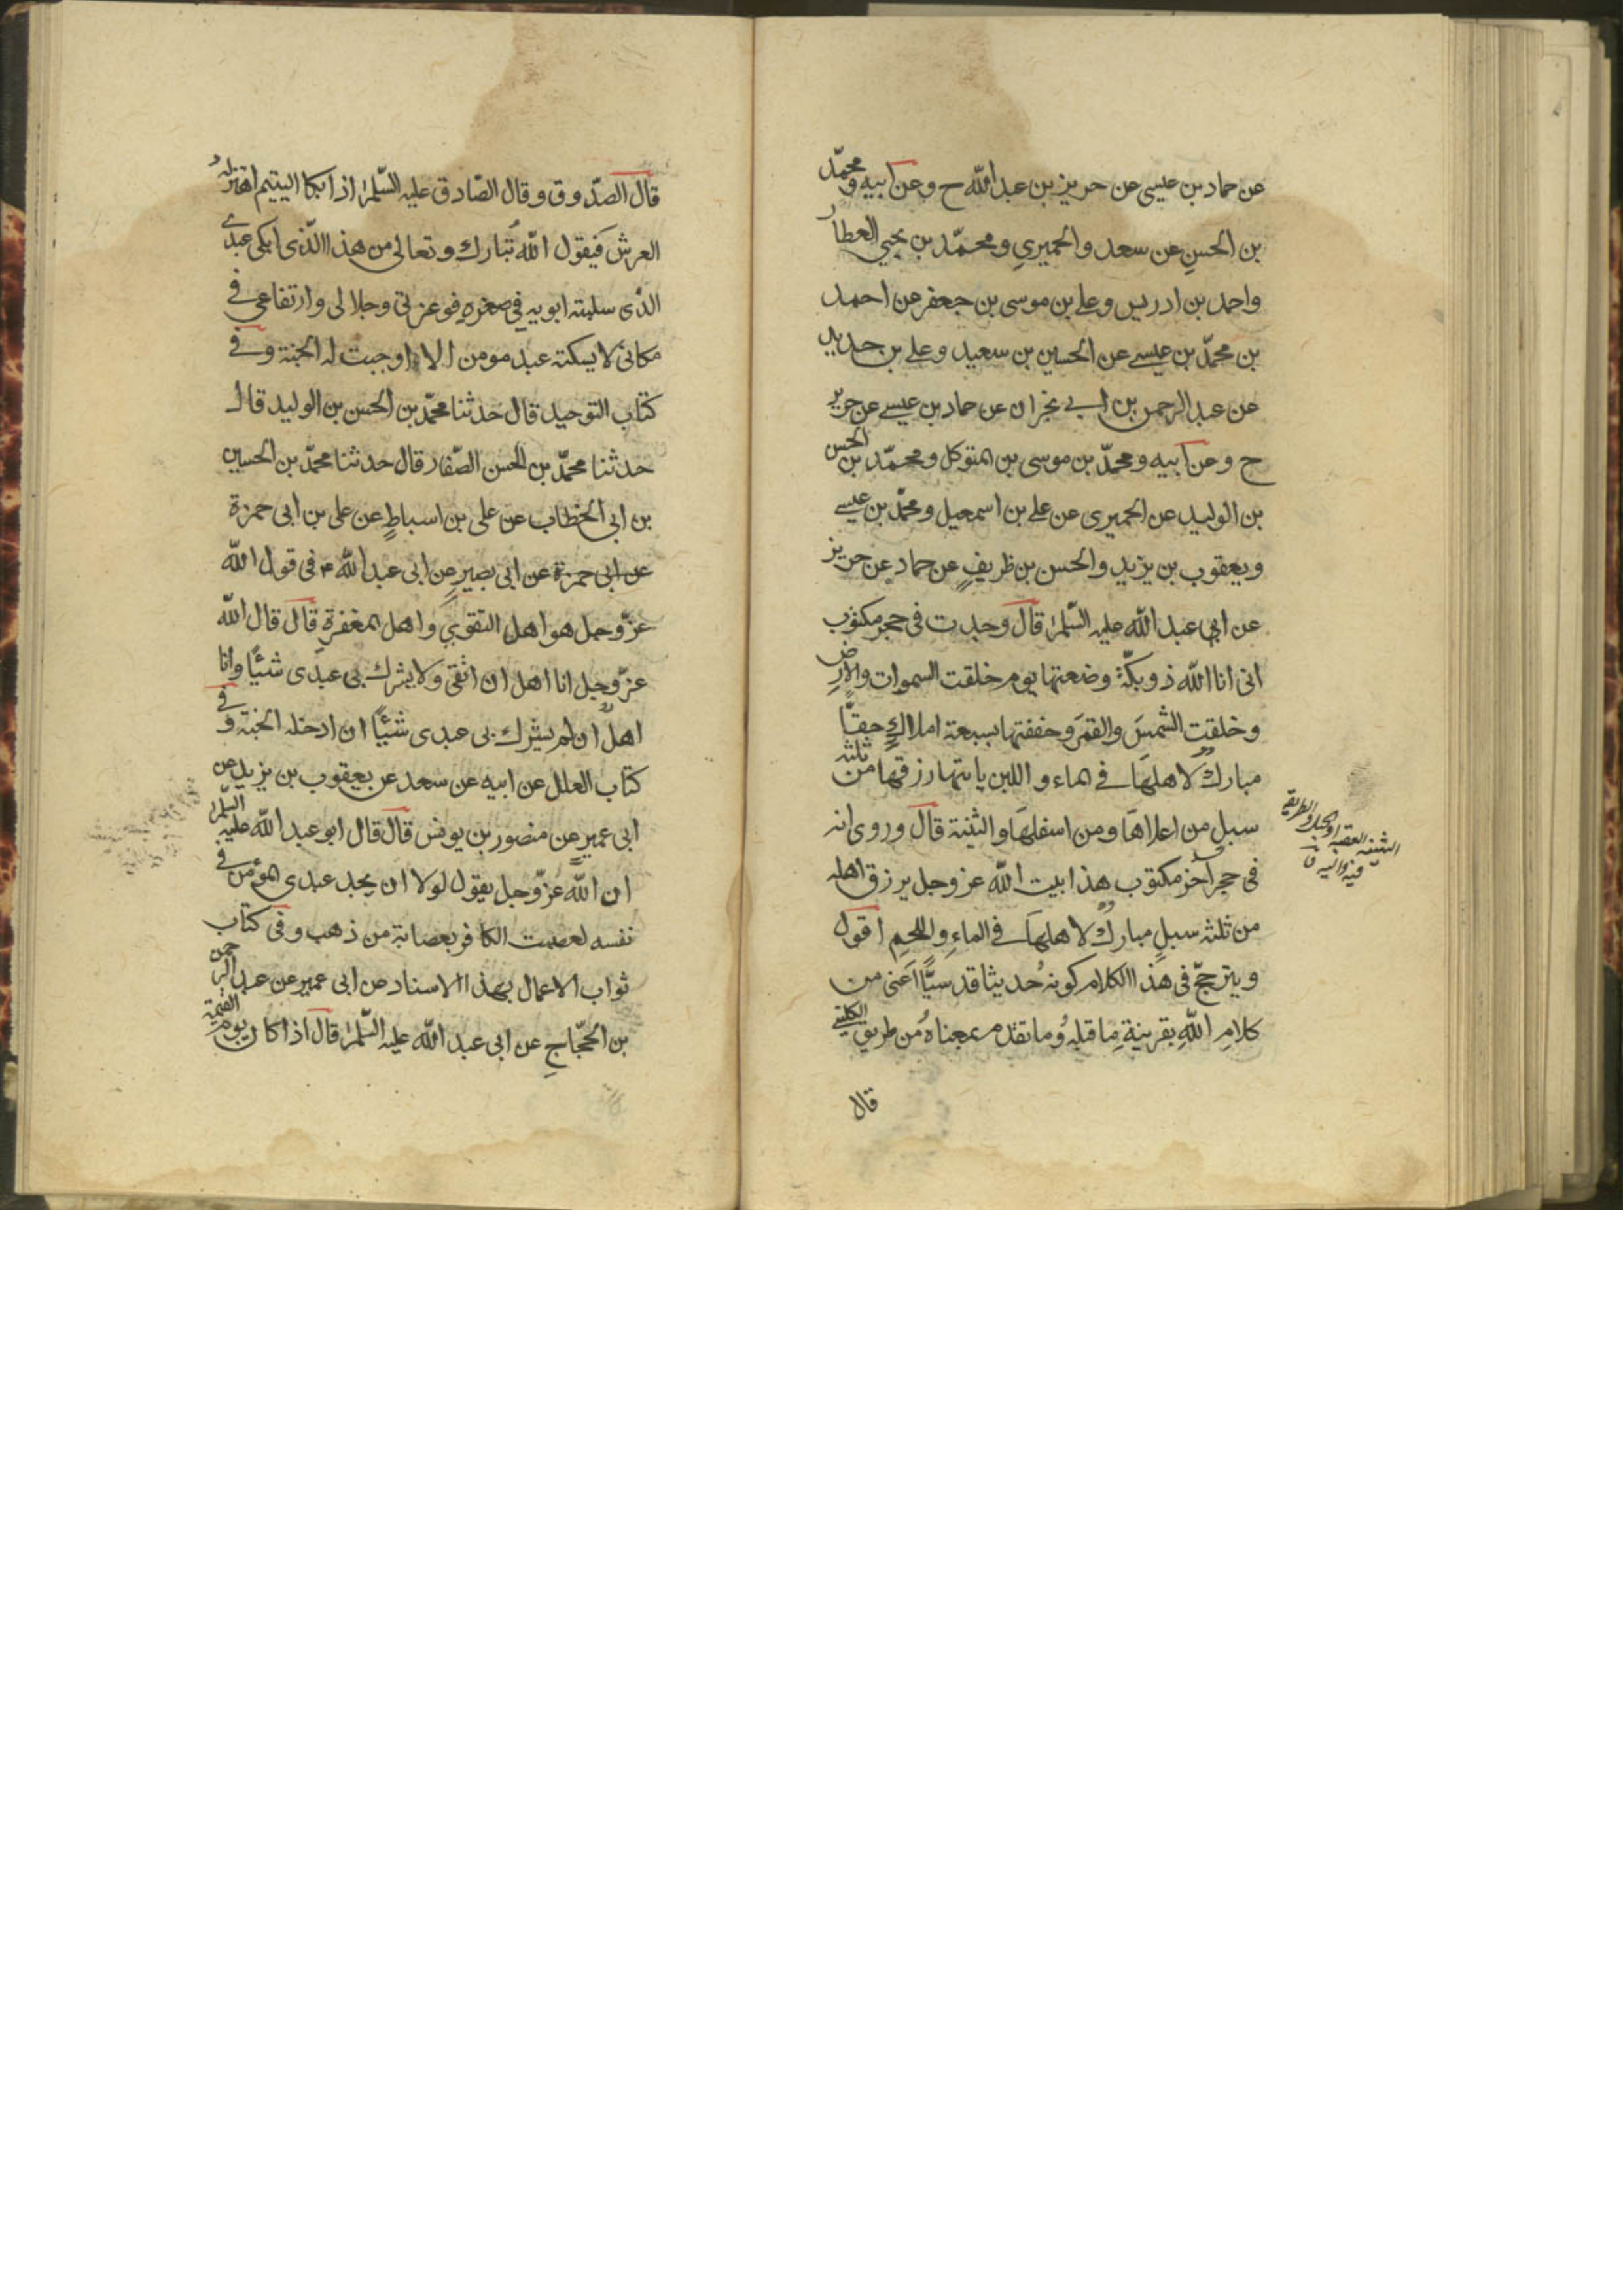 عن حماد بن عيسى عن حريز بن عبد الله ح وعن ابيه ومحمّد
بن الحسن عن سعد والحميري ومحمّد بن يحيى العطار
واحمد بن ادريس وعلي بن موسى بن جعفر عن احمد
بن محمّد بن عيسى عن الحسين بن سعيد وعلي بن حديد
عن عبد الرحمن بن ابي نجران عن حماد بن عيسى عن حريز
ح وعن ابيه ومحمّد بن موسى بن المتوكل ومحمّد بن الحسن
بن الوليد عن الحميرى عن علي بن اسمعيل ومحمّد بن عيسى
ويعقوب بن يزيد والحسن بن ظريفٍ عن حماد عن حريز
عن ابي عبد الله عليه السّلم قال وجدت في حجر مكتوب
انى انا الله ذو بكّة وضعتها يوم خلقت السموات والارض
وخلقت الشمسَ والقمَر وحففتها بسبعة املاكٍ حفّاً
مبارك لاهلهَا فى الماء واللبن ياتيها رزقها من ثلثه
سبلٍ من اعلاهَا ومن اسفلهَا والثنية قال وروى انه
فى حجر آخر مكتوب هذا بيت الله عز وجل يرزق اهله
من ثلثه سبلٍ مبارك لاهلهَا فى الماءِ واللحمِ اقول
ويترجّح فى هذا الكلام كونهُ حديثا قدسيًّا اَعنى من
كلامِ اللهِ بقرينةِ ما قبلهُ وما تقدم بمعناهُ من طريق الكليني
قال
الثنية العقبة او الجبل والطريقة
فيه او اليه ق
قال الصّدوق وقال الصّادق عليه السّلم اذا بكا اليتيم اهتز له
العرش فَيقول اللهُ تبارك وتعالى من هذا الّذى ابكى عبدى
الذى سلبته ابويه فى صغرهِ فوعزتى وجلالى وارتفاعى فى
مكانى لا يسكته عبد مومن الا اوجبت له الجنة وفى
كتاب التوحيد قال حدثنا محمّد بن الحسن بن الوليد قال
حدثنا محمّد بن الحسن الصّفار قال حدثنا محمّد بن الحسين
بن ابى الخطاب عن على بن اسباطٍ عن على بن ابى حمزة
عن ابى حمزة عن ابى بصيرٍ عن ابى عبد الله ع فى قول الله
عزّ وجل هو اهل التقوى واهل المغفرةِ قال قال الله
عزّ وجل انا اهل ان اتّقى ولا يشرك بى عبدى شيئًا وانا
اهل ان لم يشرك بى عبدى شيئًا ان ادخله الجنة وفى
كتاب العلل عن ابيه عن سعد عن يعقوب بن يزيد عن
ابى عمير عن منصور بن يونس قال قال ابو عبد الله عليه السّلم
ان الله عزّ وجل يقول لولا ان يجد عبدى المؤمن فى
نفسه لعصبت الكافر بعصابة من ذهب وفى كتاب
ثواب الاعمال بهذا الاسناد عن ابى عمير عن عبد الرحمن
بن الحجّاجِ عن ابى عبد الله عليه السّلم قال اذا كان يوم القيمة